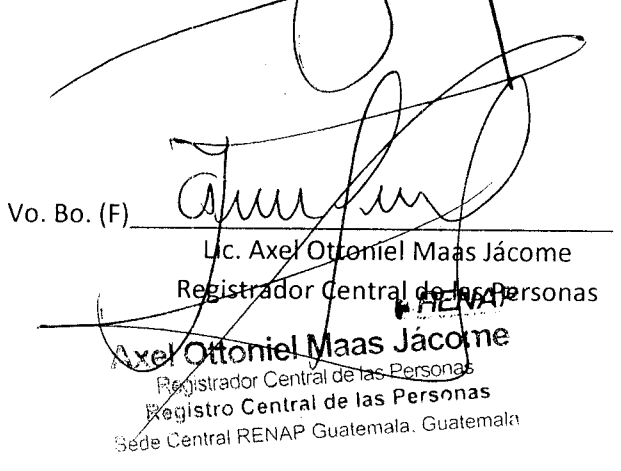 Vo. Bo. (F)
Lic. Axel Ottoniel Maas Jácome
Registrador Central de las Personas
RENAP
Axel Ottoniel Maas Jácome
Registrador Central de las Personas
Registro Central de las Personas
Sede Central RENAP Guatemala. Guatemala